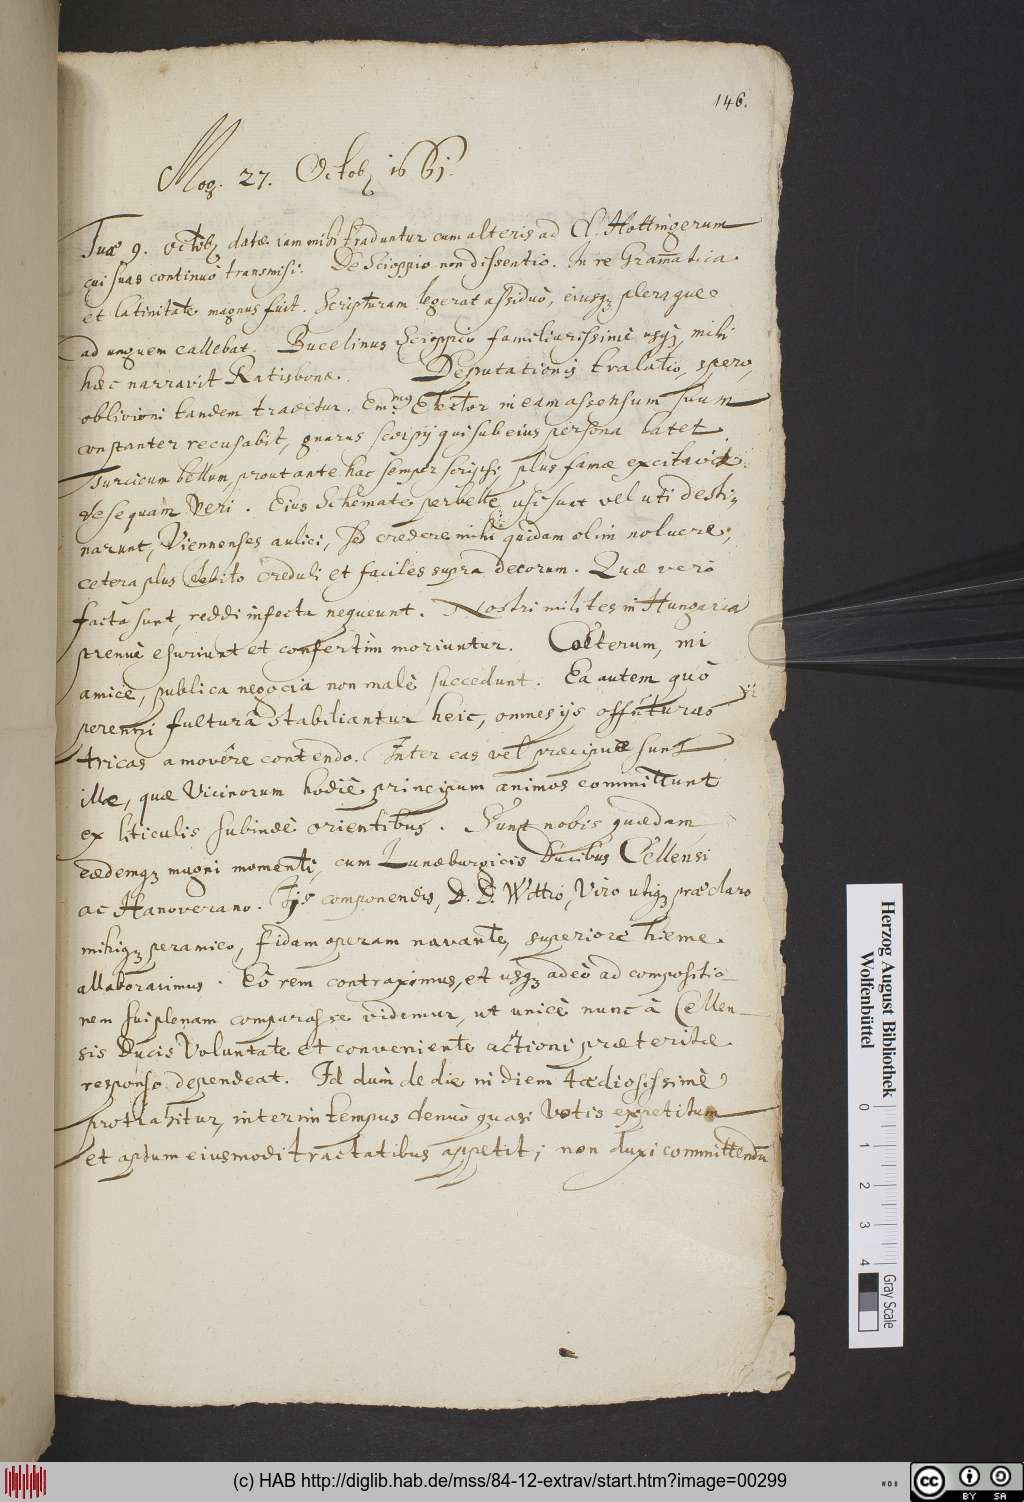 146.
Mog. 27. Octob. 1661.
Tuæ 9. Octob. datæ iam mihi traduntur cum alteris ad Cl. Hottingerum
qui suas continuò transmisi. De Scioppio non dissentio. In re Gram̄atica
et latinitate magnus fuit. Scripturam legerat assiduò, eiusq; pleraque
ad unguem callebat. Bucelinus Scioppio familiarissimè usq; mihi
hæc narravit Ratisbonæ. Deputationis tralatio, spero,
oblivioni tandem tradetur. Emmus Elector in eam assensum suum
constanter recusabit, gnarus scorpij qui sub eius persona latet.
Turcicum bellum, prout ante hac semper scripsi, plus famæ excitavit
se quàm veri. Eius Schemate perbelle usi sunt vel uti desti-
narunt, Viennenses aulici, sed credere mihi quidam olim noluere,
cetera plus debito creduli et faciles supra decorum. Quæ verò
facta sunt, reddi infecta nequeunt. Nostri milites in Hungaria
strenuè esuriunt et confertim moriuntur. Cæterum, mi
amice, publica negocia non malè succedunt. Ea autem quò
perenni fulturâ stabiliantur heic, omnes ijs offuturas
tricas amovêre contendo. Inter eas vel præcipuæ sunt
illæ, quæ Vicinorum hodiè principum animos committunt
ex liticulis subindè orientibus. Sunt nobis quædam,
eædemq; magni momenti, cum Lunæburgicis Ducibus Cellensi
ac Hanoverano. Ijs componendis, D. D. Wittio, Viro utiq; præclaro
mihiq; peramico, fidam operam navante, superiore hieme
allaboravimus. Eò rem contraximus, et usq; adeò ad compositio-
nem sui plenam comparasse videmur, ut unicè nunc à Cellen-
sis Ducis Voluntate et conveniente actioni præteritæ
responso dependeat. Id dum de die in diem tædiosissimè
protrahitur, interim tempus denuò quasi Votis expetitum
et aptum eiusmodi tractatibus appetit; non duxi committendū
Herzog August Bibliothek
Wolfenbüttel
0 1 2 3 4
Gray Scale
(c) HAB http://diglib.hab.de/mss/84-12-extrav/start.htm?image=00299
cc BY SA